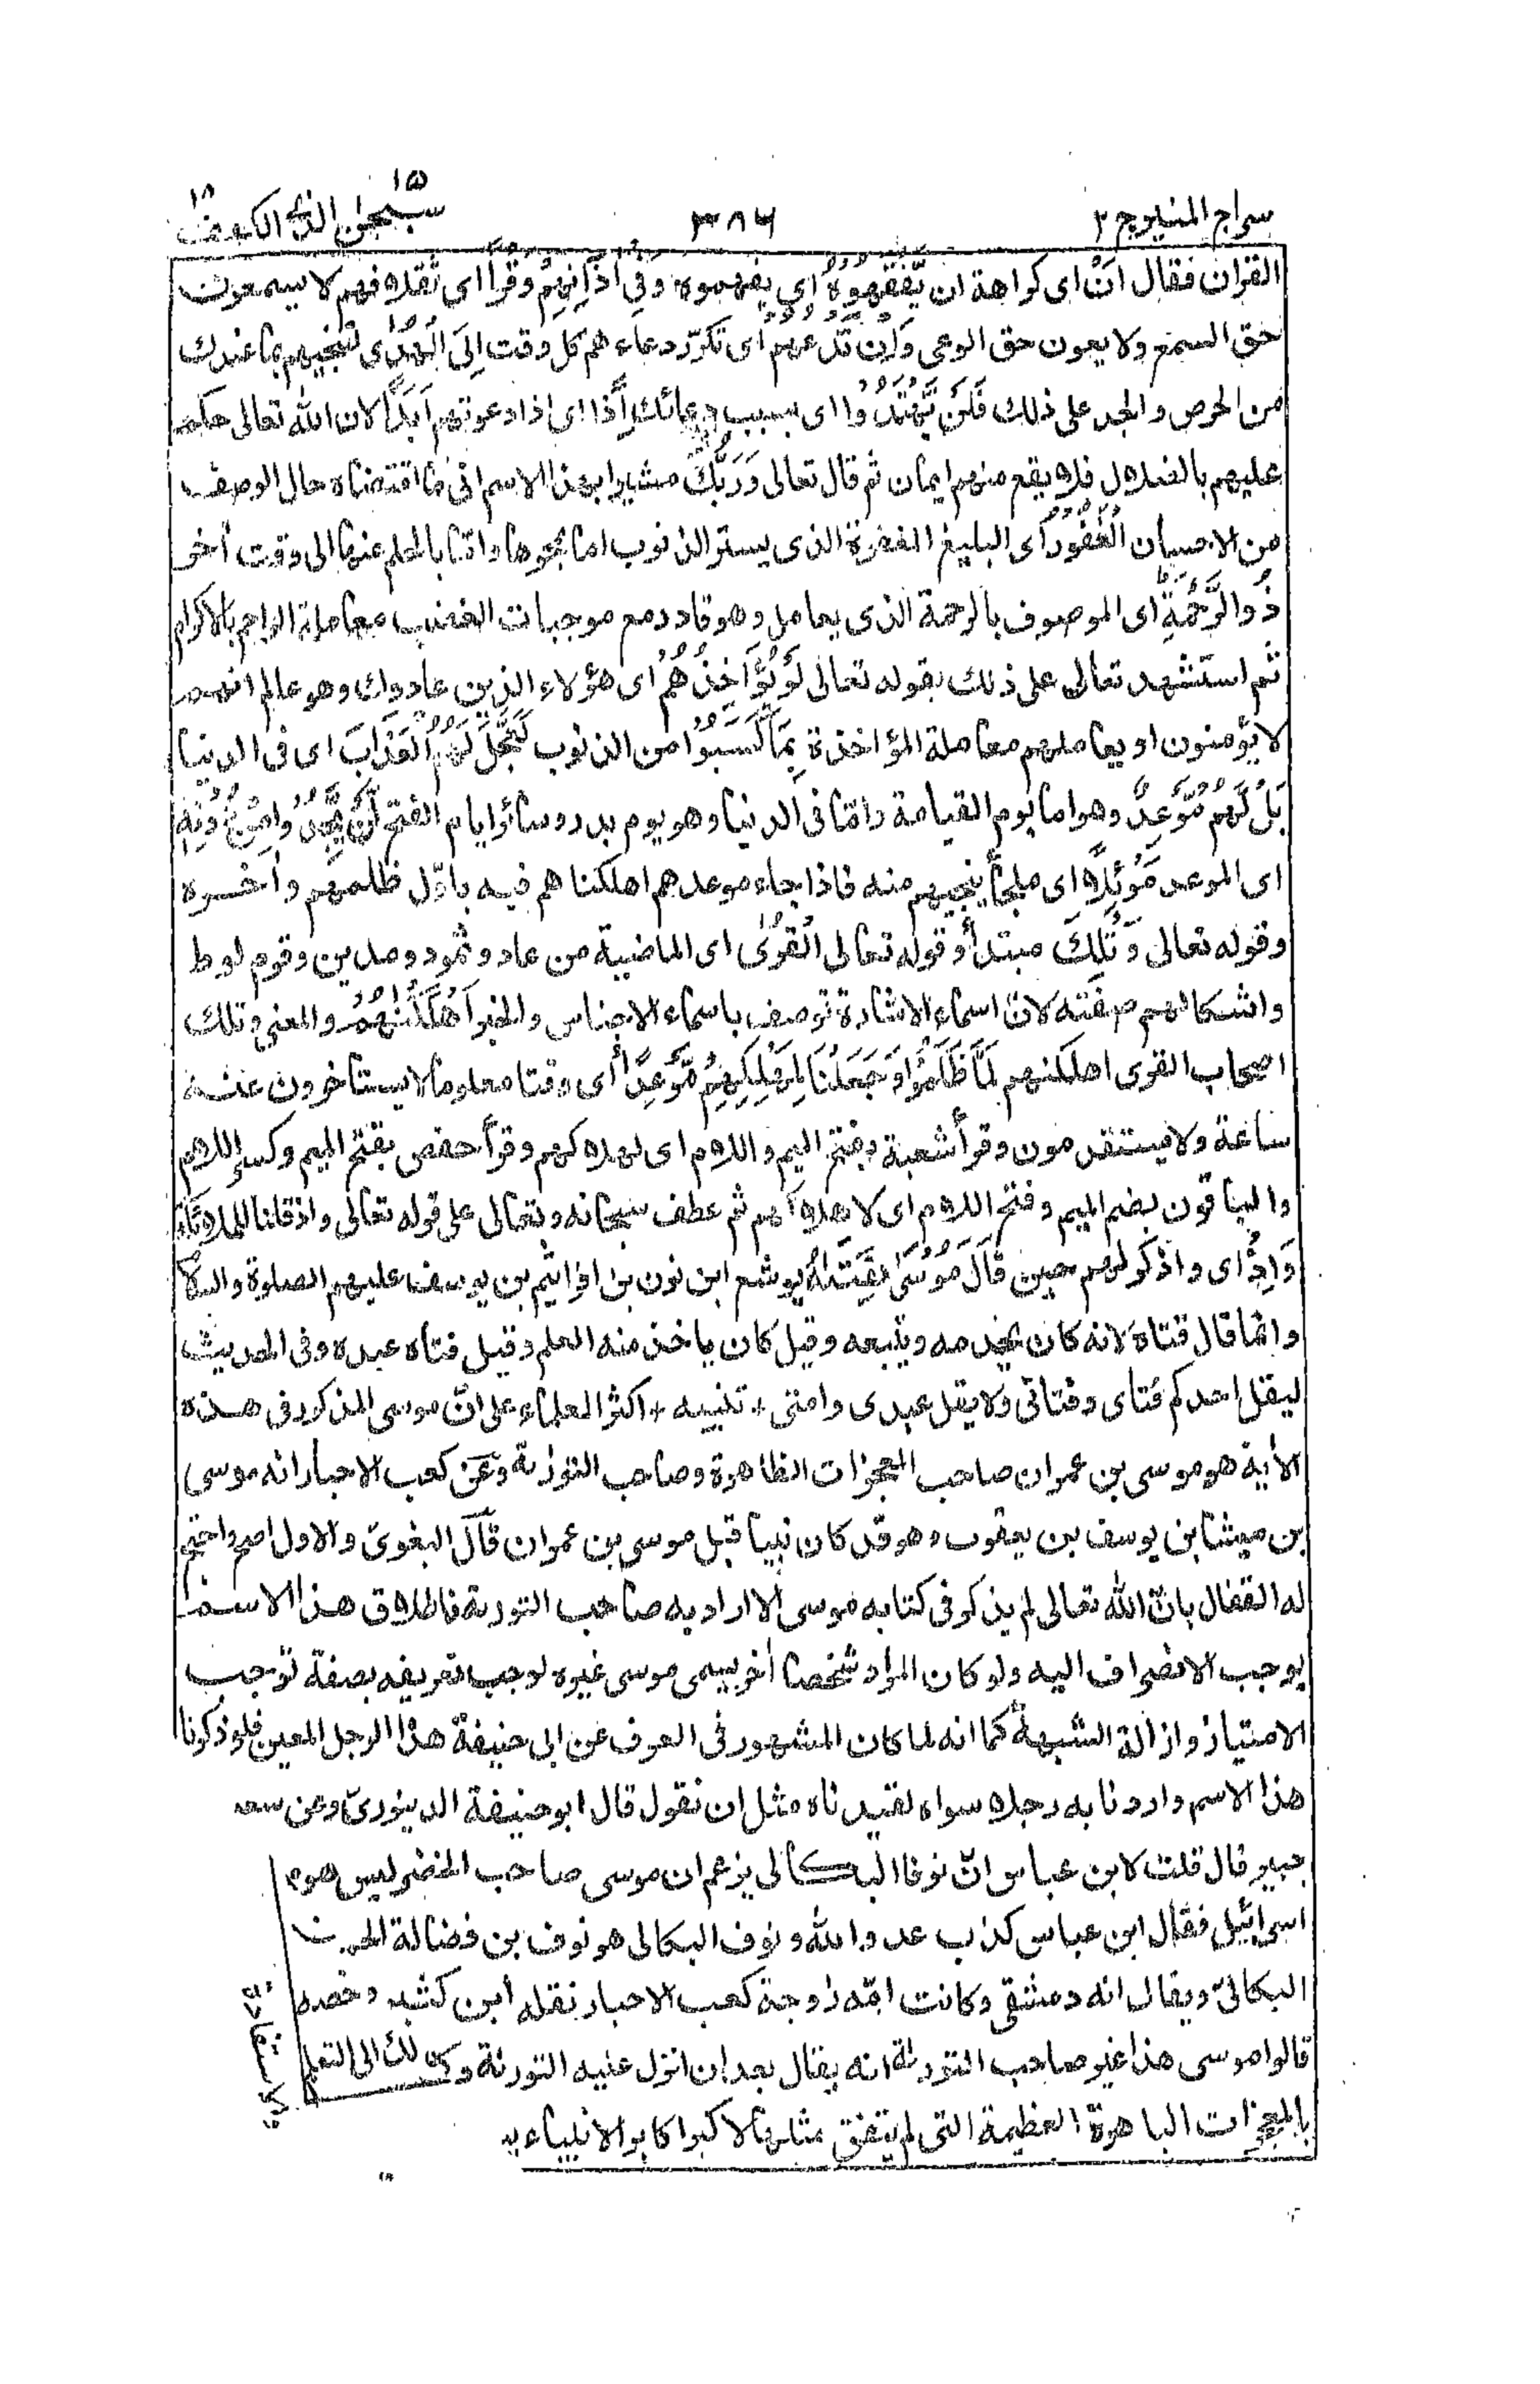 سراج المنير ج ٢
٣٨٦
سبحٰن الذى ١٥ الكهف ١٨
القرآن فقال اَنْ اى كراهة ان يَّفْقَهُوْهُ اى يفهموه وَفِى اٰذَانِهِمْ وَقْرًا اى ثقلا فهم لا يسمعون
حق السمع ولا يعون حق الوعى وَاِنْ تَدْعُهُمْ اى تكرّر دعاءهم كل وقت اِلَى الْهُدٰى لتنجيهم بما عندك
من الحرص والجد على ذلك فَلَنْ يَّهْتَدُوْا اى بسبب دعائك اِذًا اى اذا دعوتهم اَبَدًا لان الله تعالى حكم
عليهم بالضلال فلا يقع منهم ايمان ثم قال تعالى وَرَبُّكَ مشيرا بهذا الاسم الى ما اقتضاه حال الوصف
من الاحسان الْغَفُوْرُ اى البليغ المغفرة الذى يستر الذنوب اما بمحوها واما بالحلم عنها الى وقت اٰخر
ذُو الرَّحْمَةِ اى الموصوف بالرحمة الذى يعامل وهو قادر مع موجبات الغضب معاملة الراحم بالاكرام
ثم استشهد تعالى على ذلك بقوله تعالى لَوْ يُؤَاخِذُهُمْ اى هؤلاء الذين عادوك وهو عالم انهم
لا يؤمنون او يعاملهم معاملة المؤاخذة بِمَا كَسَبُوْا من الذنوب لَعَجَّلَ لَهُمُ الْعَذَابَ اى فى الدنيا
بَلْ لَّهُمْ مَّوْعِدٌ وهو اما يوم القيامة واما فى الدنيا وهو يوم بدر وسائر ايام الفتح لَّنْ يَّجِدُوْا مِنْ دُوْنِهٖ
اى الموعد مَوْئِلًا اى ملجأ ينجيهم منه فاذا جاء موعدهم اهلكناهم فيه باوّل ظلمهم واٰخره
وقوله تعالى وَتِلْكَ مبتدأ وقوله تعالى الْقُرٰى اى الماضية من عاد وثمود ومدين وقوم لوط
واشكالهم صفته لانّ اسماء الاشارة توصف باسماء الاجناس والخبر اَهْلَكْنٰهُمْ والمعنى وتلك
اصحاب القرى اهلكنهم لَمَّا ظَلَمُوْا وَجَعَلْنَا لِمَهْلِكِهِمْ مَّوْعِدًا اى وقتا معلوما لا يستاخرون عنه
ساعة ولا يستقدمون وقرأ شعبة بفتح الميم واللام اى لهلاكهم وقرأ حفص بفتح الميم وكسر اللام
والباقون بضم الميم وفتح اللام اى لاهلاكهم ثم عطف سبحانه وتعالى على قوله تعالى واذ قلنا للملائكة
وَاِذْ اى واذكر لهم حين قَالَ مُوْسٰى لِفَتٰىهُ يوشع ابن نون بن افراثيم بن يوسف عليهم الصلوة والسلام
وانما قال فتاه لانه كان يخدمه ويتبعه وقيل كان ياخذ منه العلم وقيل فتاه عبده وفى الحديث
ليقل احدكم فتاى وفتاتى ولا يقل عبدى وامتى + تنبيه + اكثر العلماء على انّ موسى المذكور فى هذه
الاٰية هو موسى بن عمران صاحب المعجزات الظاهرة وصاحب التورٰىة وعن كعب الاحبار انه موسى
بن ميشا بن يوسف بن يعقوب وهو قد كان نبيا قبل موسى بن عمران قال البغوىّ والاول اصح واحتج
له القفال بانّ الله تعالى لم يذكر فى كتابه موسى الا اراد به صاحب التورىة فاطلاق هذا الاسم
يوجب الانصراف اليه ولو كان المراد شخصا اٰخر يسمى موسى غيره لوجب تعريفه بصفة توجب
الامتياز وازالة الشبهة كما انه لما كان المشهور فى العرف عن ابى حنيفة هذا الرجل المعين فلو ذكرنا
هذا الاسم واردنا به رجلا سواه لقيدناه مثل ان نقول قال ابو حنيفة الدينورىّ وعن سعيد
جبير قال قلت لابن عباس انّ نوفا البكالى يزعم ان موسى صاحب الخضر ليس هو م
اسرائيل فقال ابن عباس كذب عدو الله ونوف البكالى هو نوف بن فضالة
البكالىّ ويقال انه دمشقى وكانت امّه زوجة كعب الاحبار نقله ابن كثير
قالوا موسى هذا غير صاحب التورىة انه يقال بعد ان انزل عليه التورىة الى التعلم
بالمعجزات الباهرة العظيمة التى لم يتفق مثلها لاكبر اكابر الانبياء